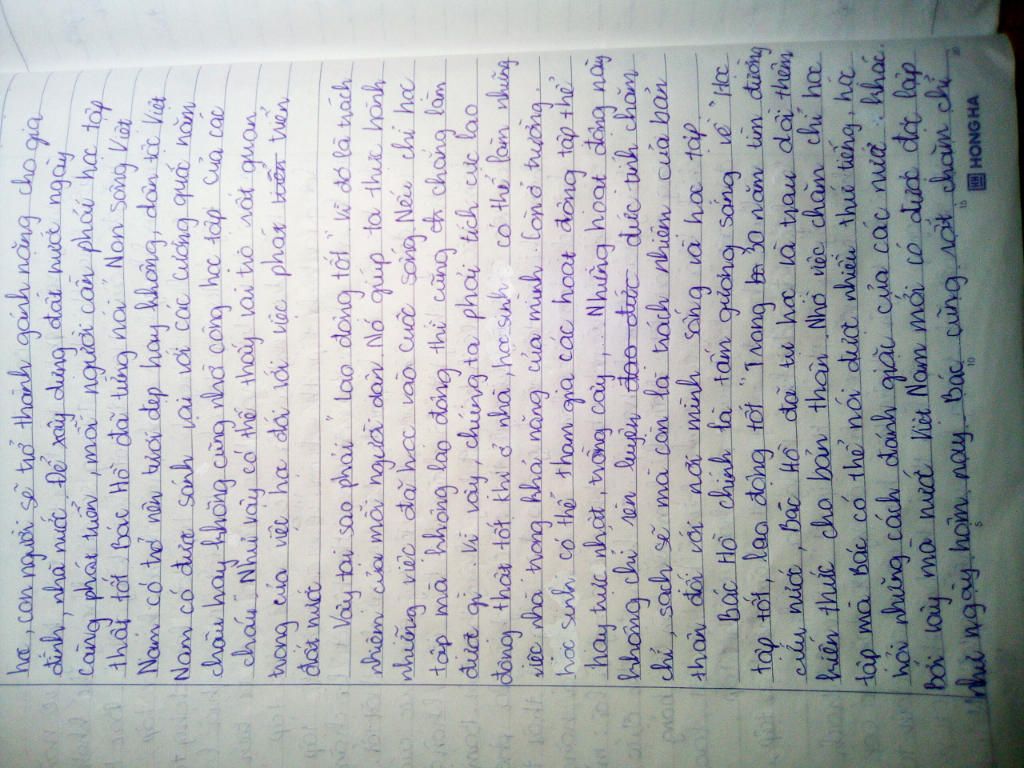 học, con người sẽ trở thành gánh nặng cho gia
đình, nhà nước. Để xây dựng đất nước ngày
càng phát triển, mỗi người cần phải học tập
thật tốt. Bác Hồ đã từng nói " Non sông Việt
Nam có trở nên tươi đẹp hay không, dân tộc Việt
Nam có được sánh vai với các cường quốc năm
châu hay không cũng nhờ công học tập của các
cháu". Như vậy có thể thấy vai trò rất quan
trọng của việc học đối với việc phát triển
đất nước.
Vậy tại sao phải " lao động tốt". Vì đó là trách
nhiệm của mỗi người dân. Nó giúp ta thực hành
những việc đã học vào cuộc sống. Nếu chỉ học
tập mà không lao động thì cũng chẳng làm
được gì. Vì vậy, chúng ta phải tích cực lao
động thật tốt. Khi ở nhà, học sinh có thể làm những
việc nhà trong khả năng của mình. Còn ở trường,
học sinh có thể tham gia các hoạt động tập thể
hay trực nhật, trồng cây,... Những hoạt động này
không chỉ rèn luyện đức tính chăm
chỉ, sạch sẽ mà còn là trách nhiệm của bản
thân đối với nơi mình sống và học tập.
Bác Hồ chính là tấm gương sáng về " Học
tập tốt, lao động tốt". Trong 30 năm tìm đường
cứu nước, Bác Hồ đã tự học và trau dồi thêm
kiến thức cho bản thân. Nhờ việc chăm chỉ học
tập mà Bác có thể nói được nhiều thứ tiếng, học
hỏi những cách đánh giặc của các nước khác.
Bởi vậy mà nước Việt Nam mới có được độc lập
như ngày hôm nay. Bác cũng rất chăm chỉ
5 10 15 20
HONG HA